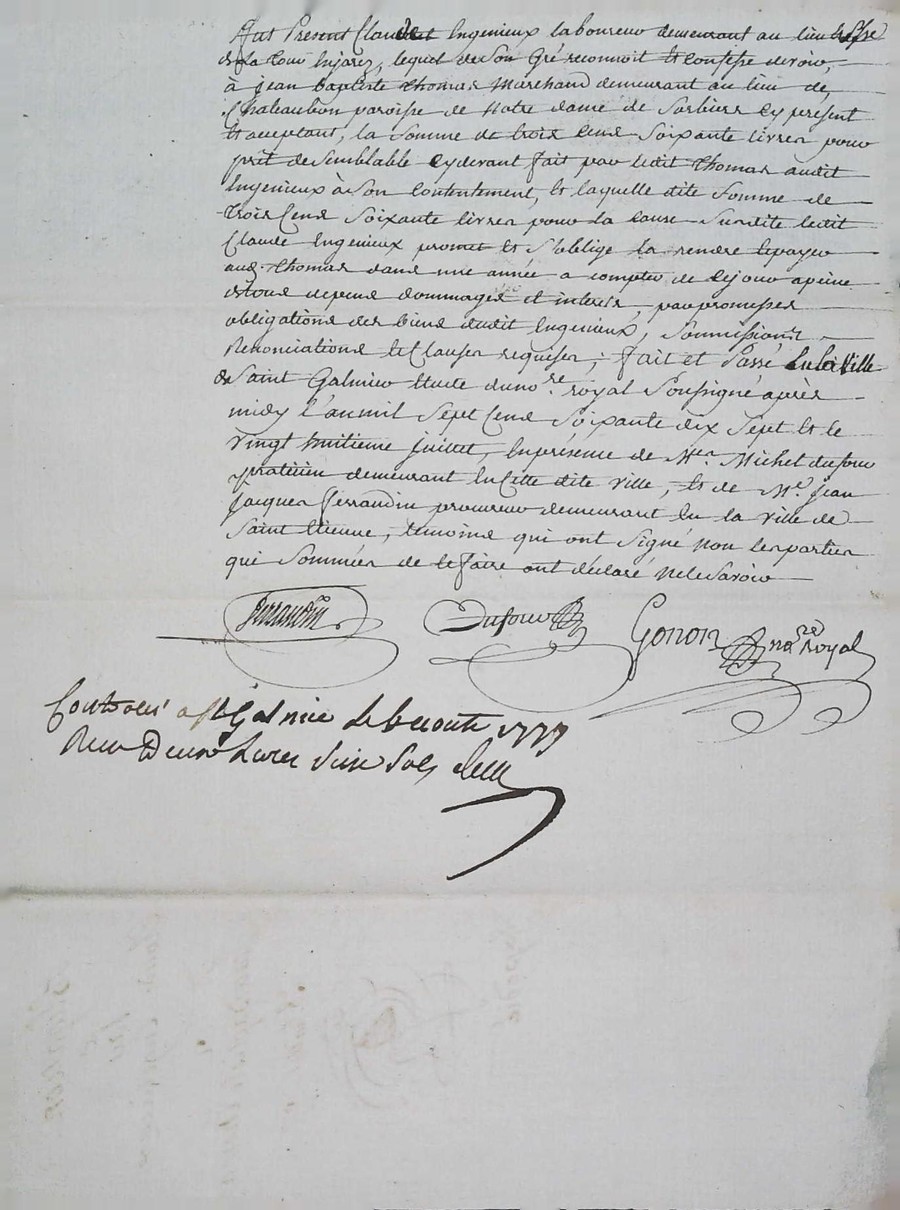 Fut Present Claude Ingenieux laboureur demeurant au lieu &
de la tour enjarez, lequel de son Gré reconnoit et confesse devoir,
à jean Baptiste thomas Marchand demeurant au lieu de,
Chateaubon paroisse de Notre dame de Sorbiers cy present
et acceptant, la Somme de trois Cens Soixante livres pour
prêt de Semblable cy devant fait par ledit thomas audit
Ingenieux à Son Contentement, et laquelle dite Somme de
trois Cens Soixante livres pour la cause Surdite ledit
Claude Ingenieux promet et S'oblige la rendre et payer
aud. thomas dans une année a compter de ce jour a peine
de tous depens dommages et interêts, par promesses
obligations des biens dudit Ingenieux, Soumissions
Renonciations et Clauses requises; fait et Passé en la Ville
de Saint Galmier Etude du no.re royal Soussigné après
midy l'an mil Sept Cens Soixante dix Sept et le
vingt huitieme juillet, en présence de Me. Michel dufour
praticien demeurant en Cette dite ville, et de Me. jean
jacques ferrandin procureur demeurant en la ville de
Saint Etienne, temoins qui ont Signé non les parties
qui Sommées de le faire ont déclaré ne le Savoir
ferrandin Dufour Gonon no.re Royal
Controlé a St Galmier le 1777
Reçu Deux Livres Seize Sols